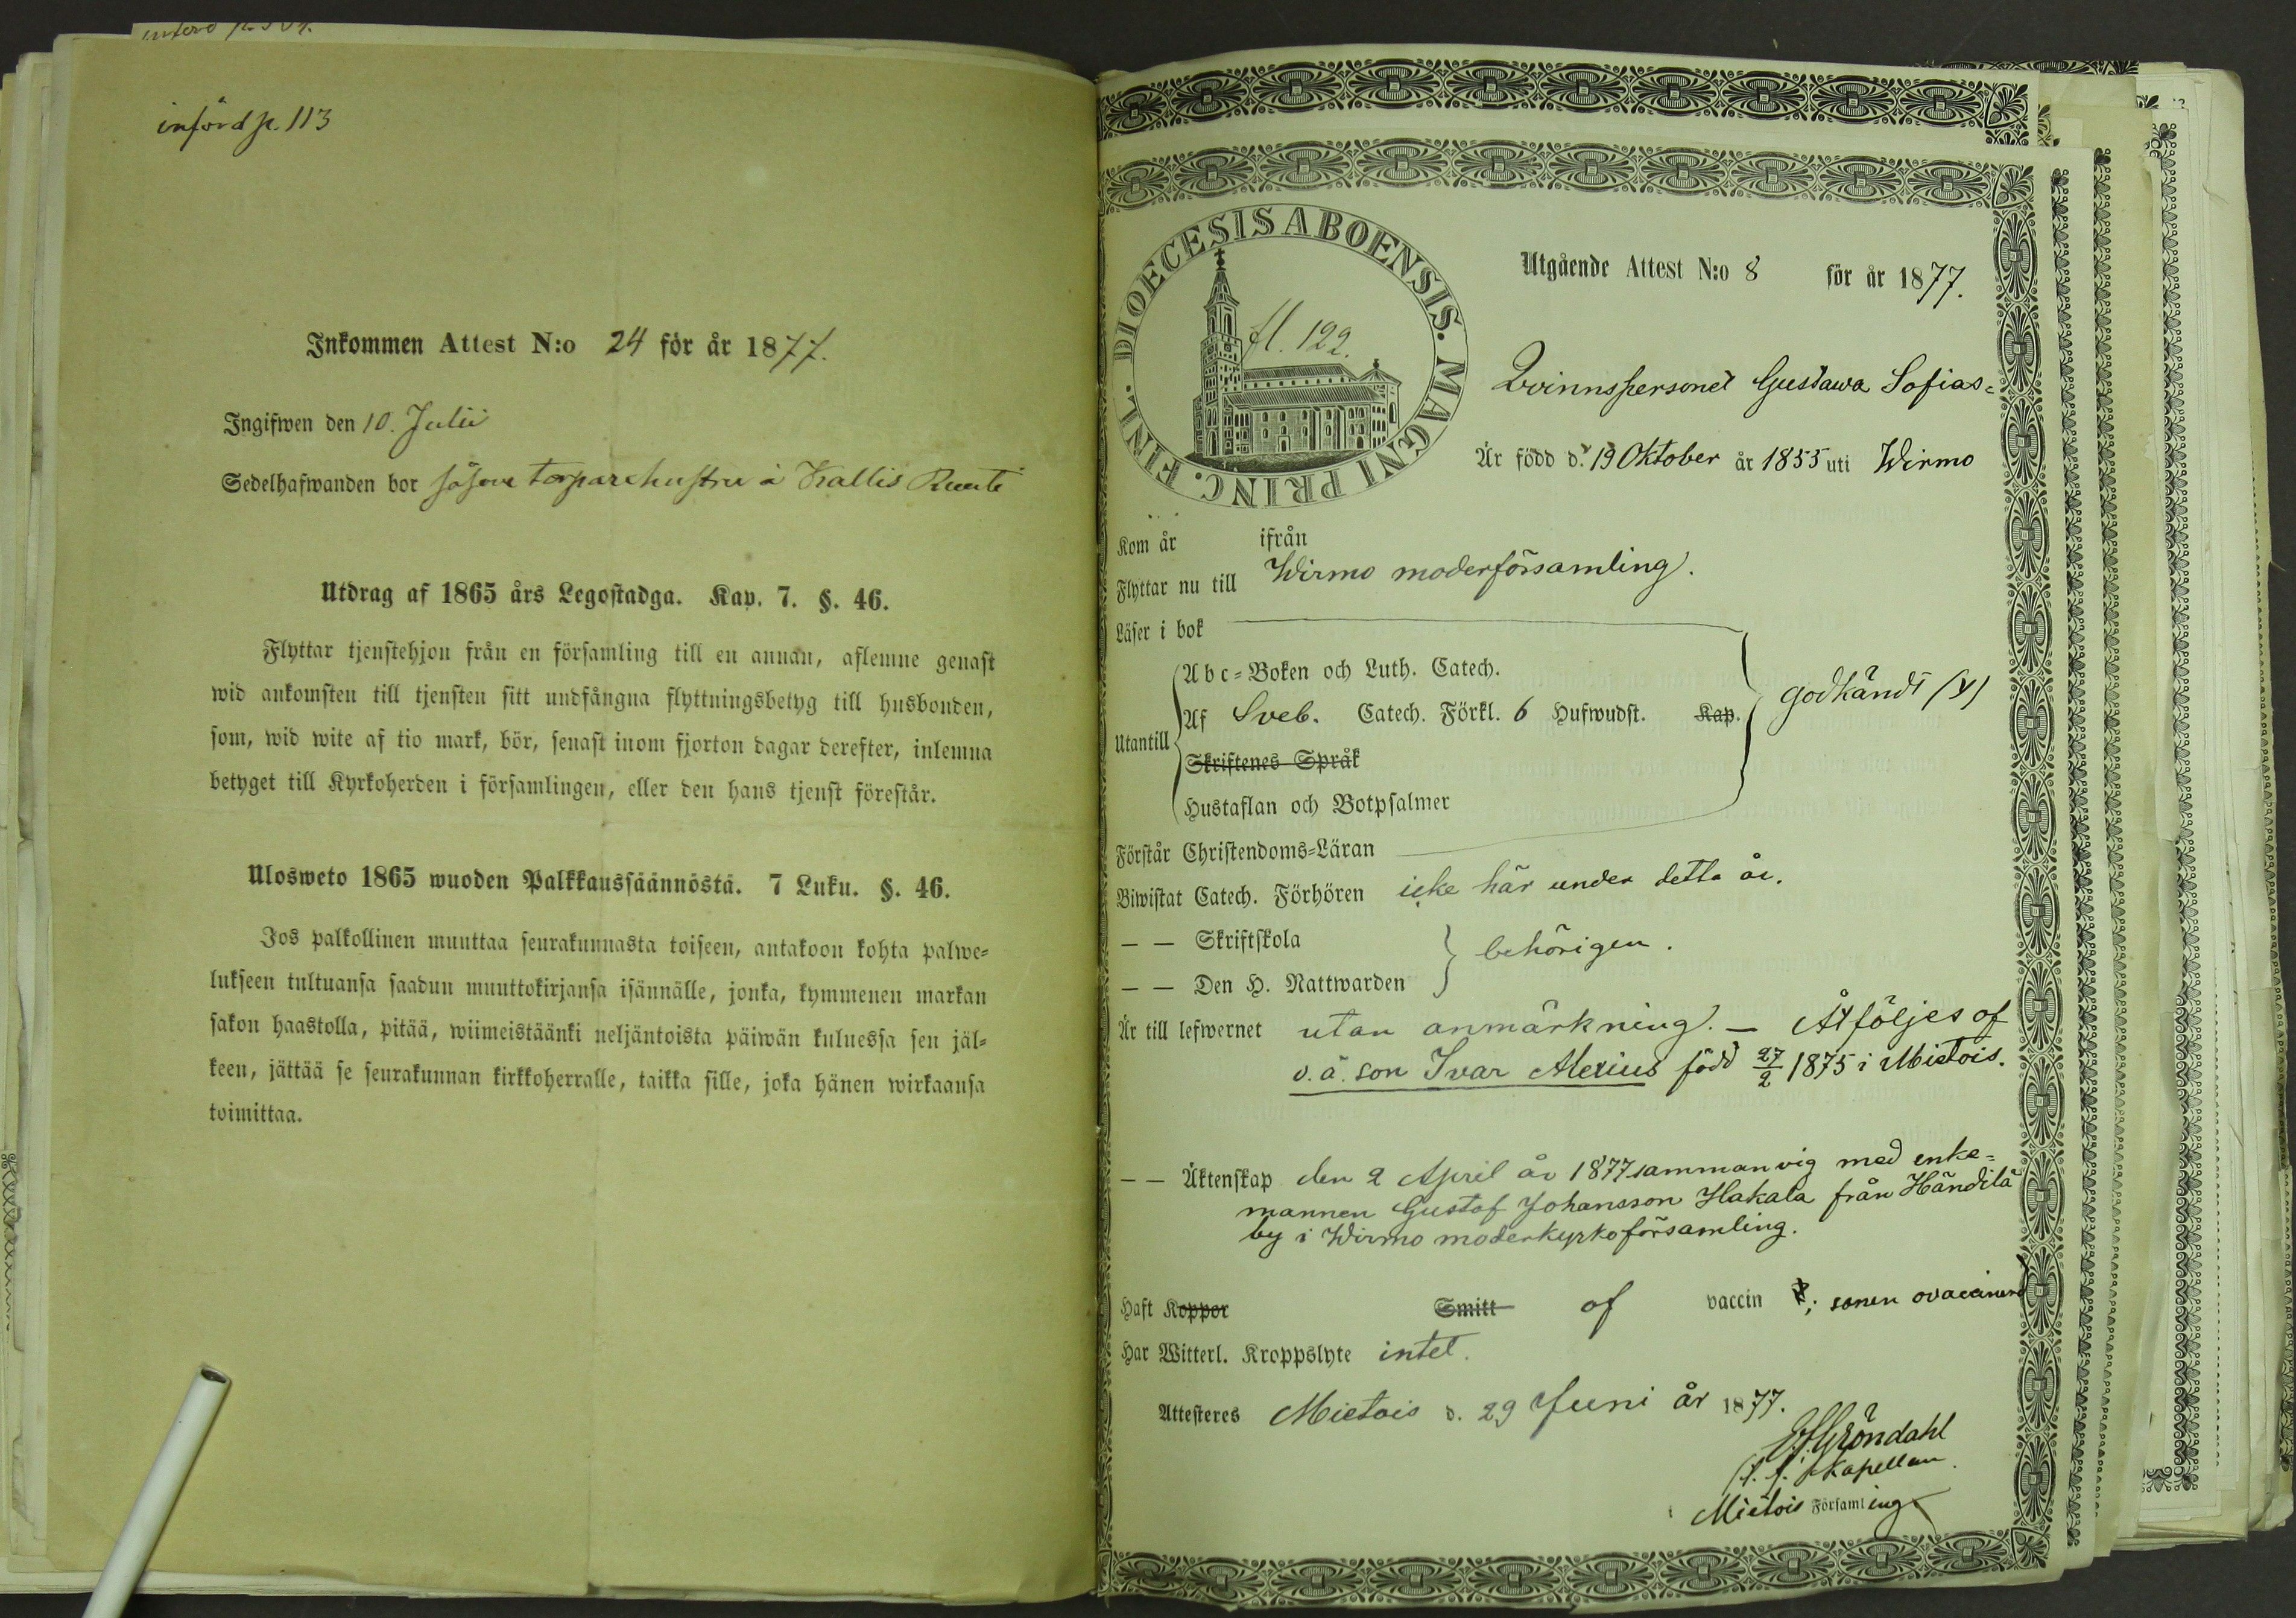 införd p. 113
Inkommen Attest N:o 24 för år 1877.
Ingifwen den 10. Julii
Sedelhafwanden bor såsom torparehustru å Krallis
Utdrag af 1865 års Legostadga. Kap. 7. §. 46.
Flyttar tjenstehjon från en församling till en annan, aflemne genast
wid ankomsten till tjensten sitt undfångna flyttningsbetyg till husbonden,
som, wid wite af tio mark, bör, senast inom fjorton dagar derefter, inlemna
betyget till Kyrkoherden i församlingen, eller den hans tjenst förestår.
Ulosweto 1865 wuoden Palkkaussäännöstä. 7 Luku. §. 46.
Jos palkollinen muuttaa seurakunnasta toiseen, antakoon kohta palwe=
lukseen tultuansa saadun muuttokirjansa isännälle, jonka, kymmenen markan
sakon haastolla, pitää, wiimeistäänki neljäntoista päiwän kuluessa sen jäl=
keen, jättää se seurakunnan kirkkoherralle, taikka sille, joka hänen wirkaansa
toimittaa.
DIOECESIS ABOENSIS. MAGNI PRINC. FINL.
fl. 122.
Utgående Attest N:o 8 för år 1877.
Qvinnspersonet Gustawa Sofias=
Är född d. 19 Oktober år 1855 uti Wirmo
Kom år ifrån
Flyttar nu till Wirmo moderförsamling.
Läser i bok
Utantill
Abc=Boken och Luth. Catech.
Af Sveb. Catech. Förkl. 6 Hufwudst. Kap.
Skriftenes Språk
Hustaflan och Botpsalmer
godkändt (y)
Förstår Christendoms=Läran
Biwistat Catech. Förhören icke här under detta år.
— — Skriftskola
— — Den H. Nattwarden
behörigen.
Är till lefwernet utan anmärkning. — Åtföljes af
o. ä. son Ivar Alexius född 27/2 1875 i Mietois.
— — Äktenskap den 2 April år 1877 sammanvig med enke=
mannen Gustaf Johansson Hakala från Händilä
by i Wirmo moderkyrkoförsamling.
Haft Koppor Smitt af vaccin ; sonen ovaccinerd
Har Witterl. Kroppslyte intet.
Attesteres Mietois d. 29 Juni år 1877.
Gröndahl
Kapellan.
i Mietois Församling